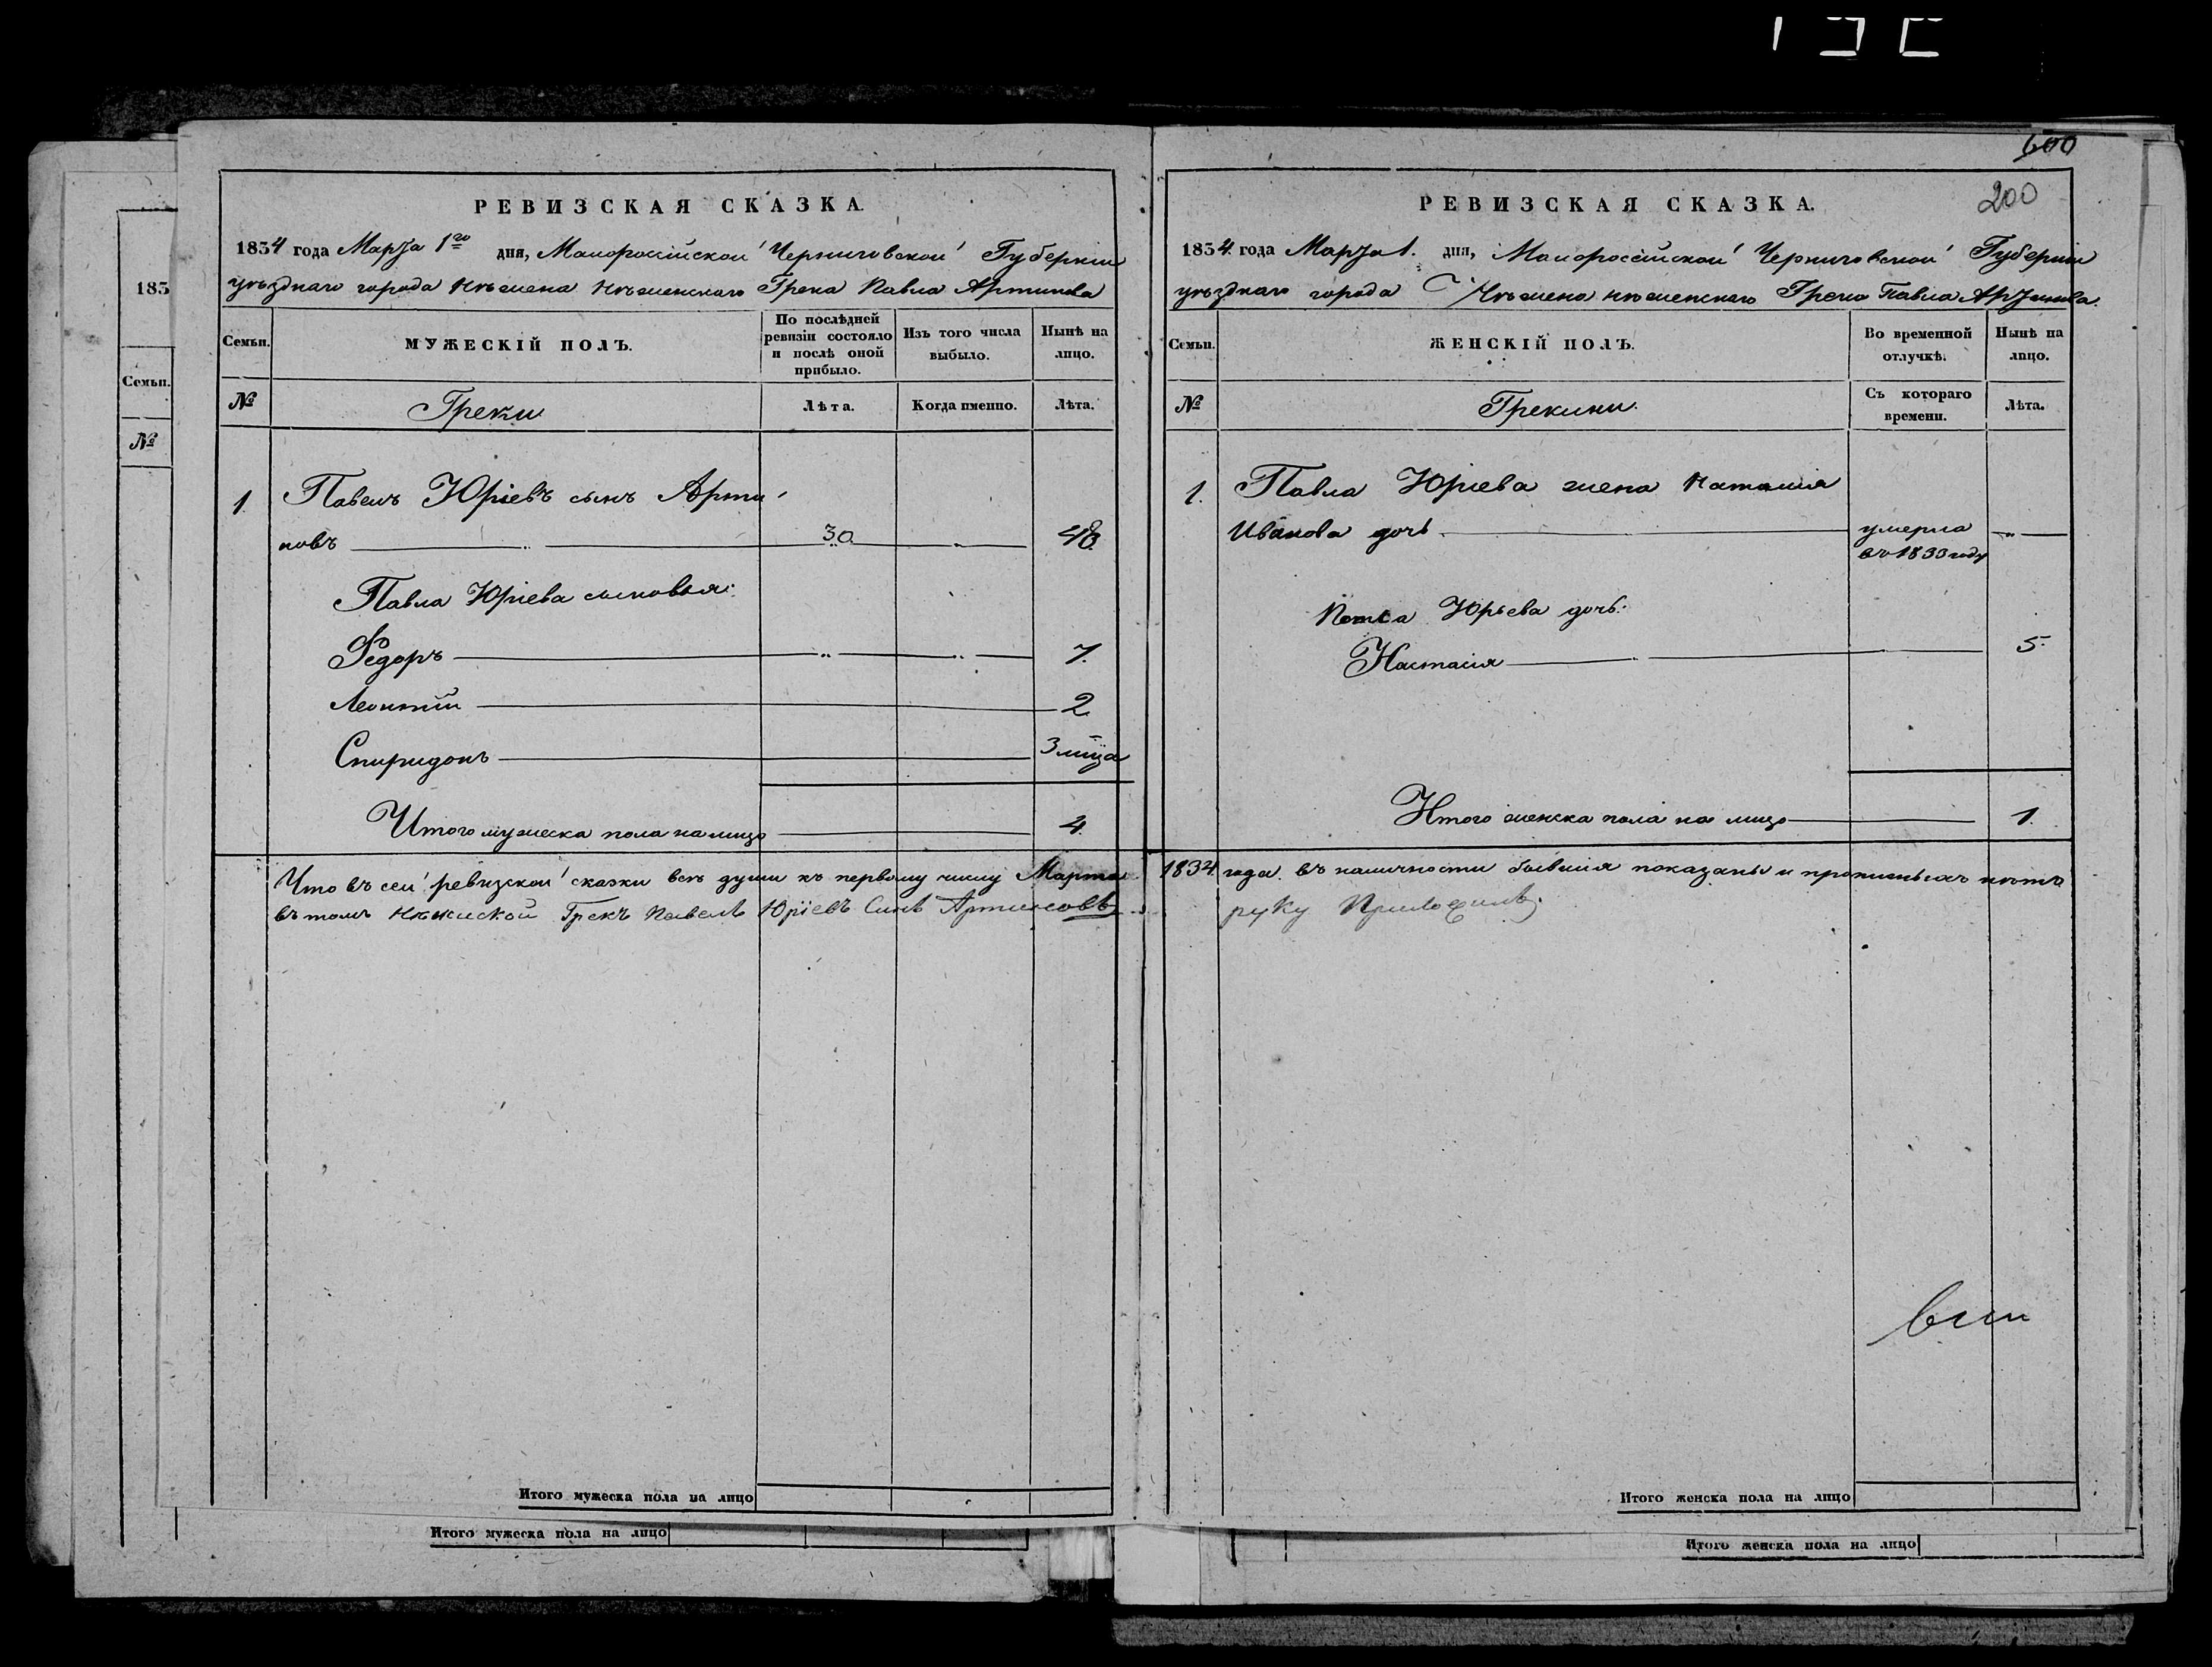 600
200
183
Семьи.
№
РЕВИЗСКАЯ СКАЗКА.
1834 года Марта 1го дня, Малороссійской Черниговской Губерніи
уѣзднаго города Нѣжина Нѣженскаго Грека Павла Артинова
Семьи.
МУЖЕСКІЙ ПОЛЪ.
По послѣдней ревизіи состояло и послѣ оной прибыло.
Изъ того числа выбыло.
Нынѣ на лицо.
№
Греки
Лѣта.
Когда именно.
Лѣта.
1. Павелъ Юріевъ сынъ Арти
новъ 30 48
Павла Юріева сыновья:
Федоръ 7.
Леонтій 2
Спиридонъ 3 мца
Итого мужеска пола на лицо 4.
РЕВИЗСКАЯ СКАЗКА.
1834 года Марта 1. дня, Малороссійской Черниговской Губерніи
уѣзднаго города Нѣжена нѣженскаго Грека Павла Артинова.
Семьи.
ЖЕНСКІЙ ПОЛЪ.
Во временной отлучкѣ.
Нынѣ на лицо.
№
Грекини.
Съ котораго времени.
Лѣта.
1. Павла Юріева жена Наталия
Иванова дочь умерла
въ 1833 году
Юрьева дочь:
Настасія 5.
Итого женска пола на лицо 1.
Что въ сей ревизской сказки всѣ души къ первому числу Марта 1834 года въ наличности бывшія показаны и прописныхъ нѣтъ
въ томъ Нѣжиской Грекъ Павелъ Юріевъ Синъ Артиновъ руку Приложилъ.
Итого мужеска пола на лицо
Итого женска пола на лицо
Итого мужеска пола на лицо
Итого женска пола на лицо